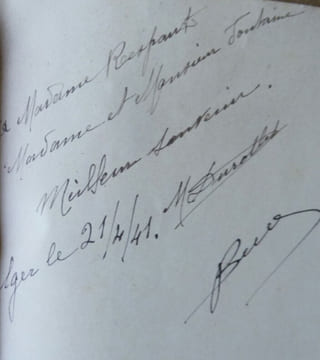 Madame
Madame et Monsieur Fontaine
Meilleur souvenir.
lger le 21/4/41. M